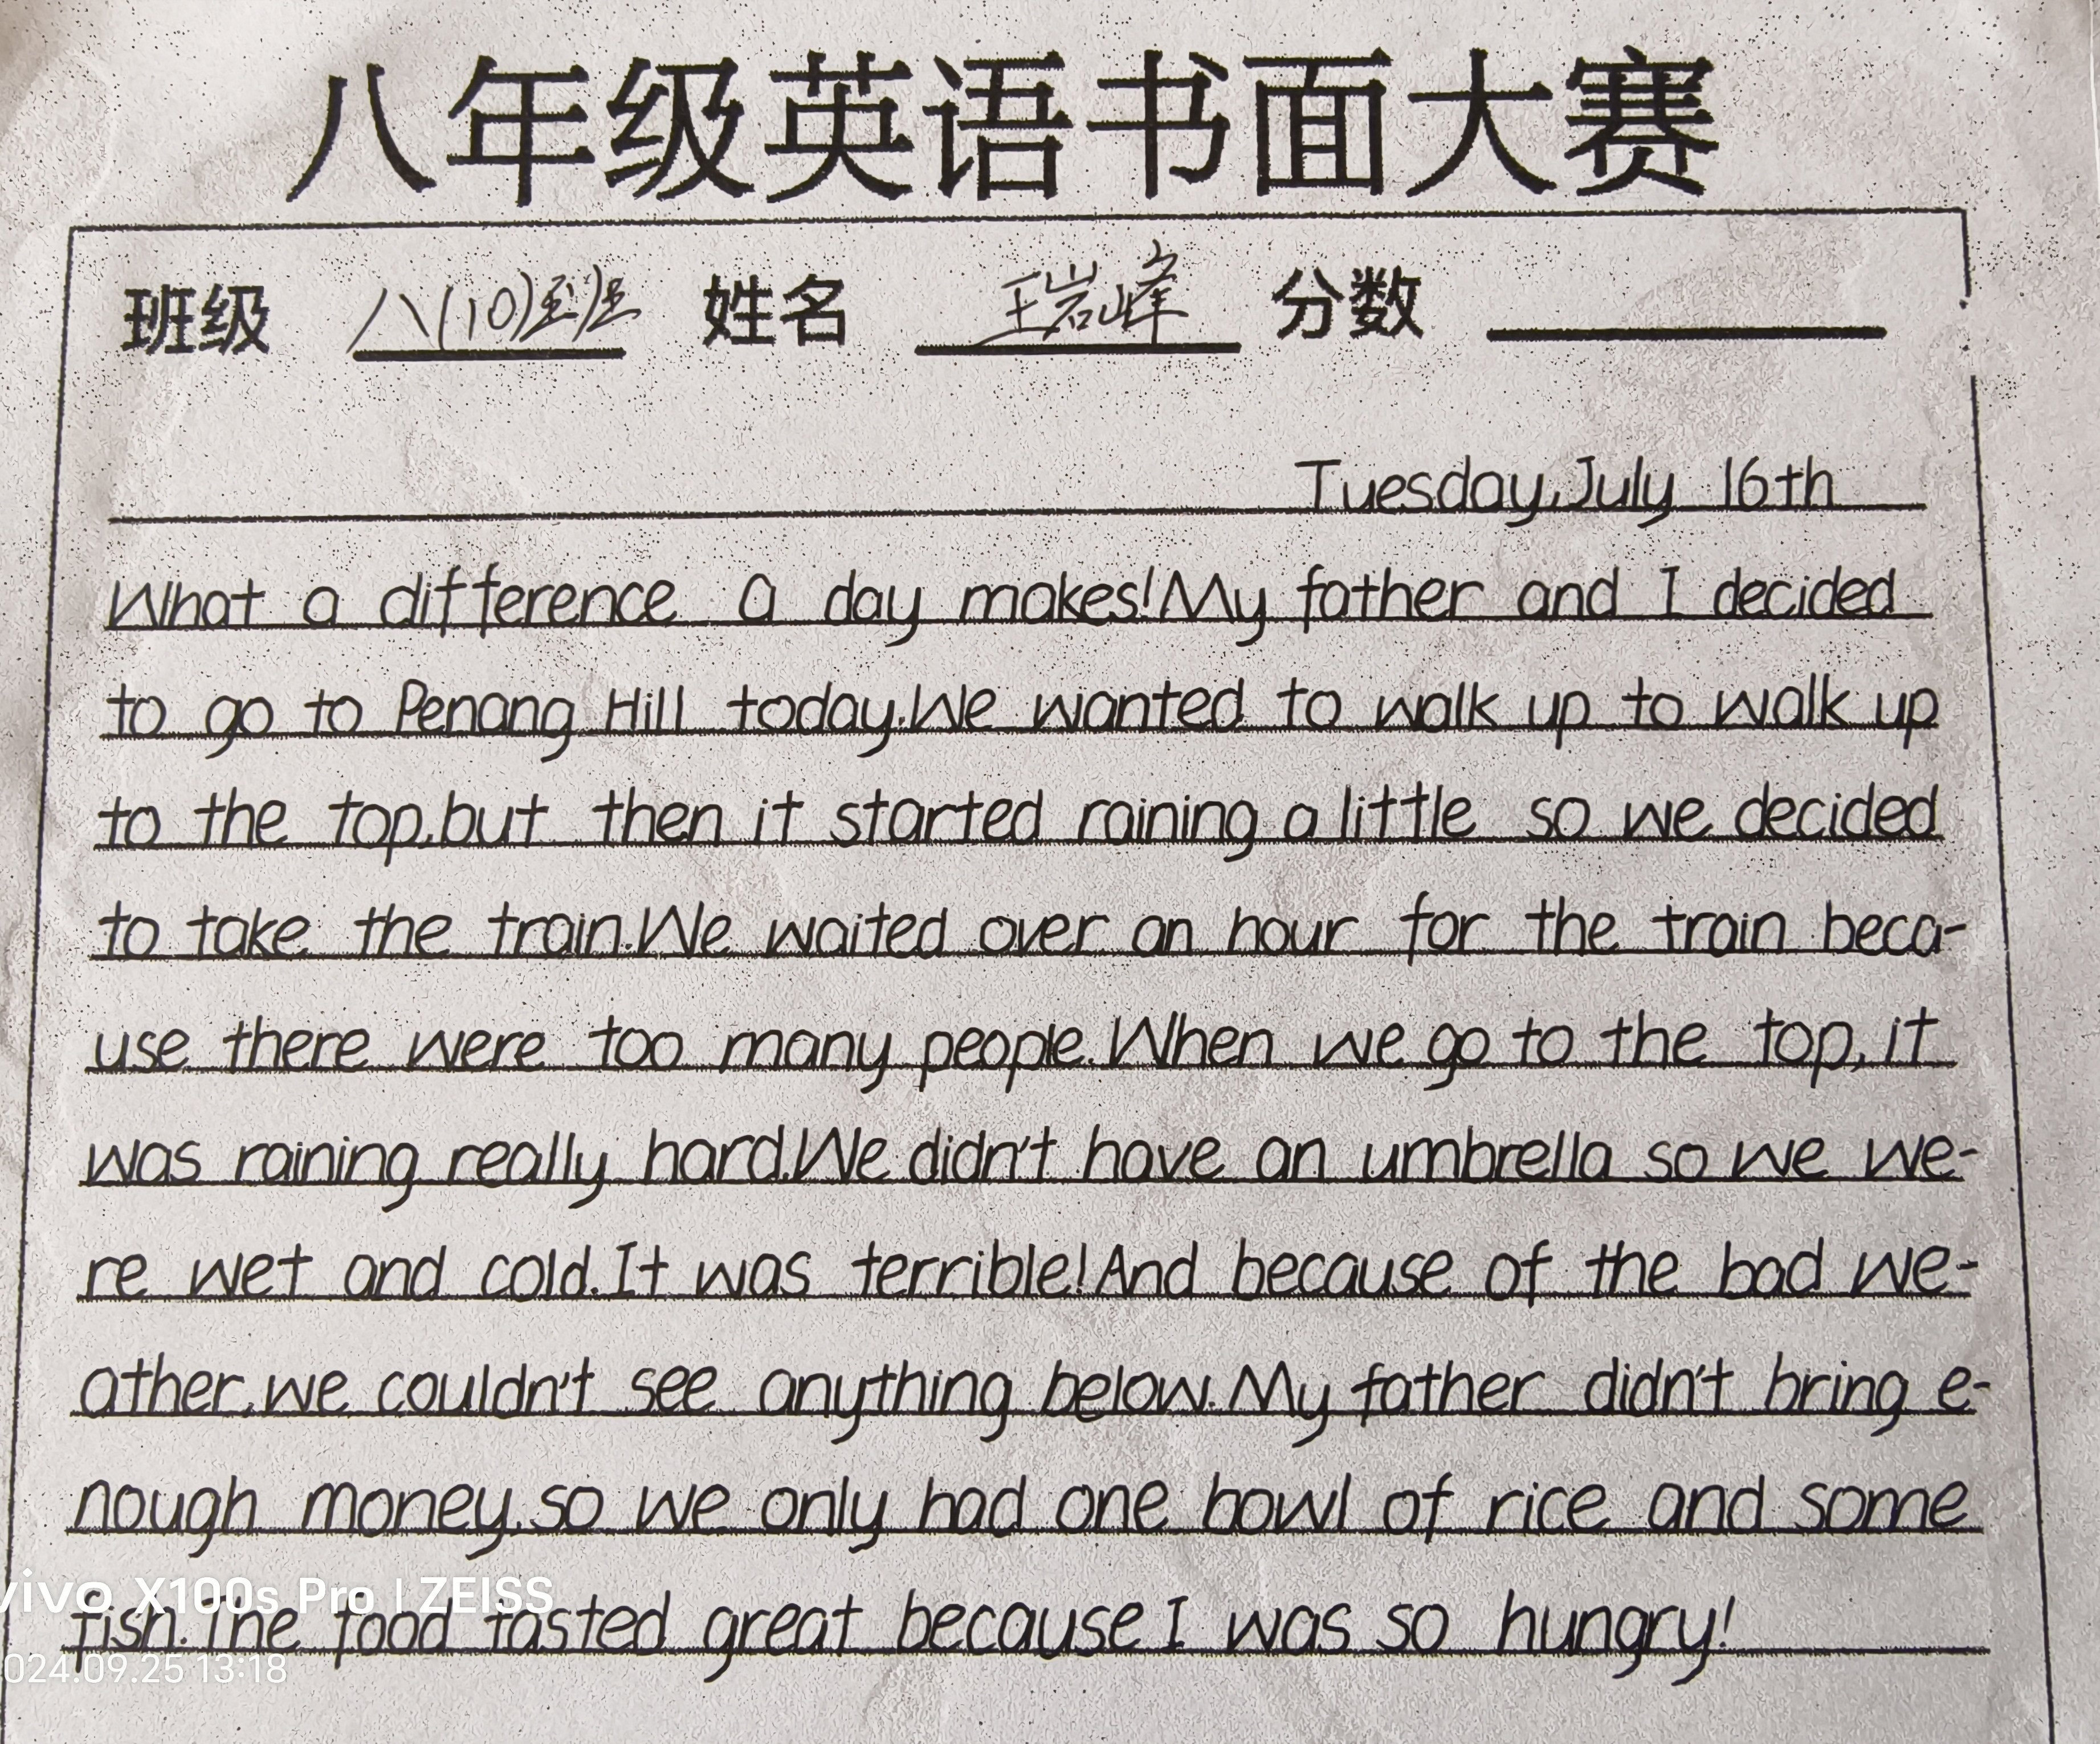 八年级英语书面大赛
班级 八(10)班 姓名 王岩峰 分数
Tuesday,July 16th
What a difference a day makes!My father and I decided
to go to Penang Hill today.We wanted to walk up to walk up
to the top,but then it started raining a little so we decided
to take the train.We waited over an hour for the train beca-
use there were too many people.When we go to the top,it
was raining really hard.We didn't have an umbrella so we we-
re wet and cold.It was terrible!And because of the bad we-
ather,we couldn't see anything below.My father didn't bring e-
nough money,so we only had one bowl of rice and some
fish.The food tasted great because I was so hungry!
vivo X100s Pro | ZEISS
024.09.25 13:18